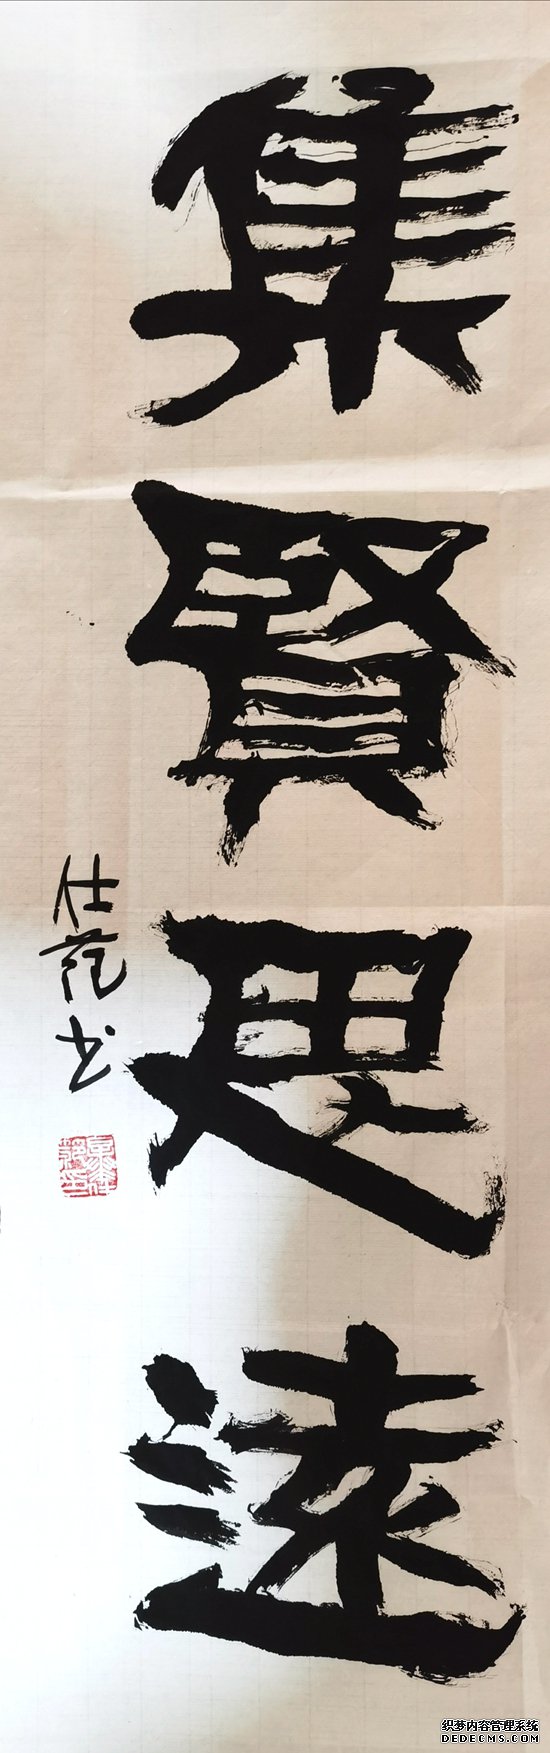 集賢思遠
仕范书
织梦内容管理系统
DEDECMS.COM